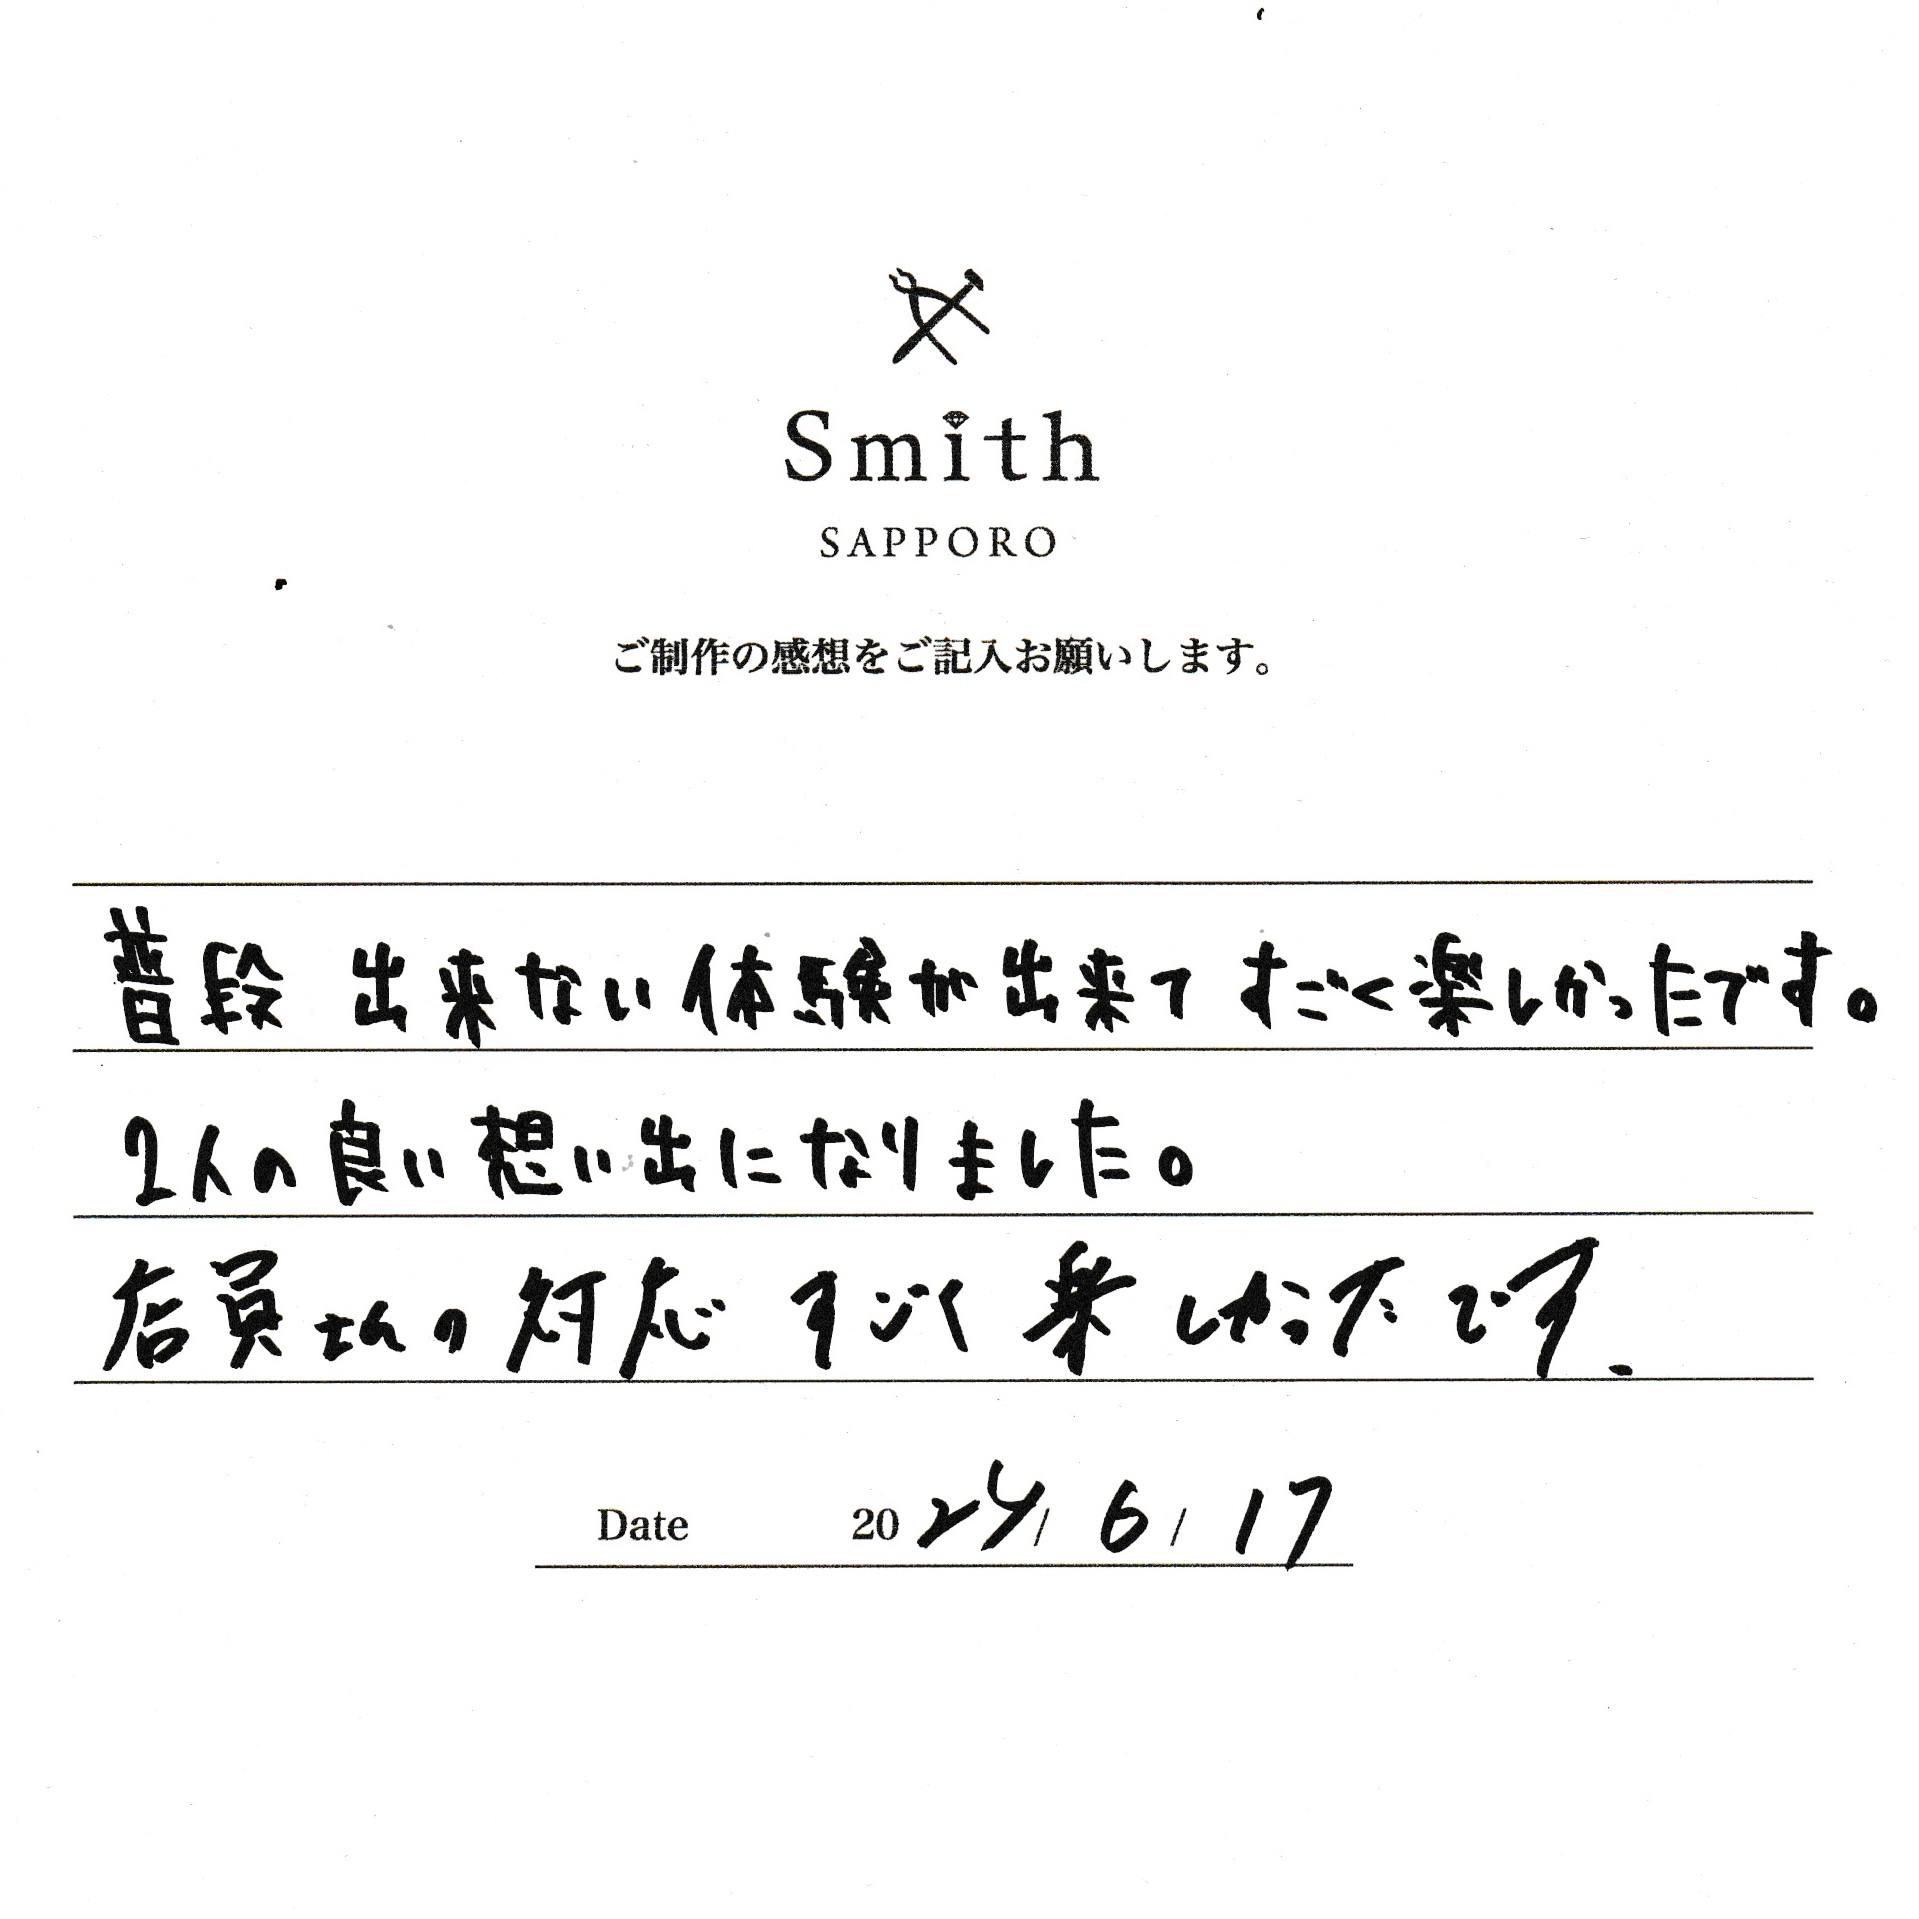 Smith
SAPPORO
ご制作の感想をご記入お願いします。
普段 出来ない体験が出来て すごく楽しかったです。
2人の良い想い出になりました。
店員さんの対応 すごく 楽しかったです
Date 2024/ 6/ 17